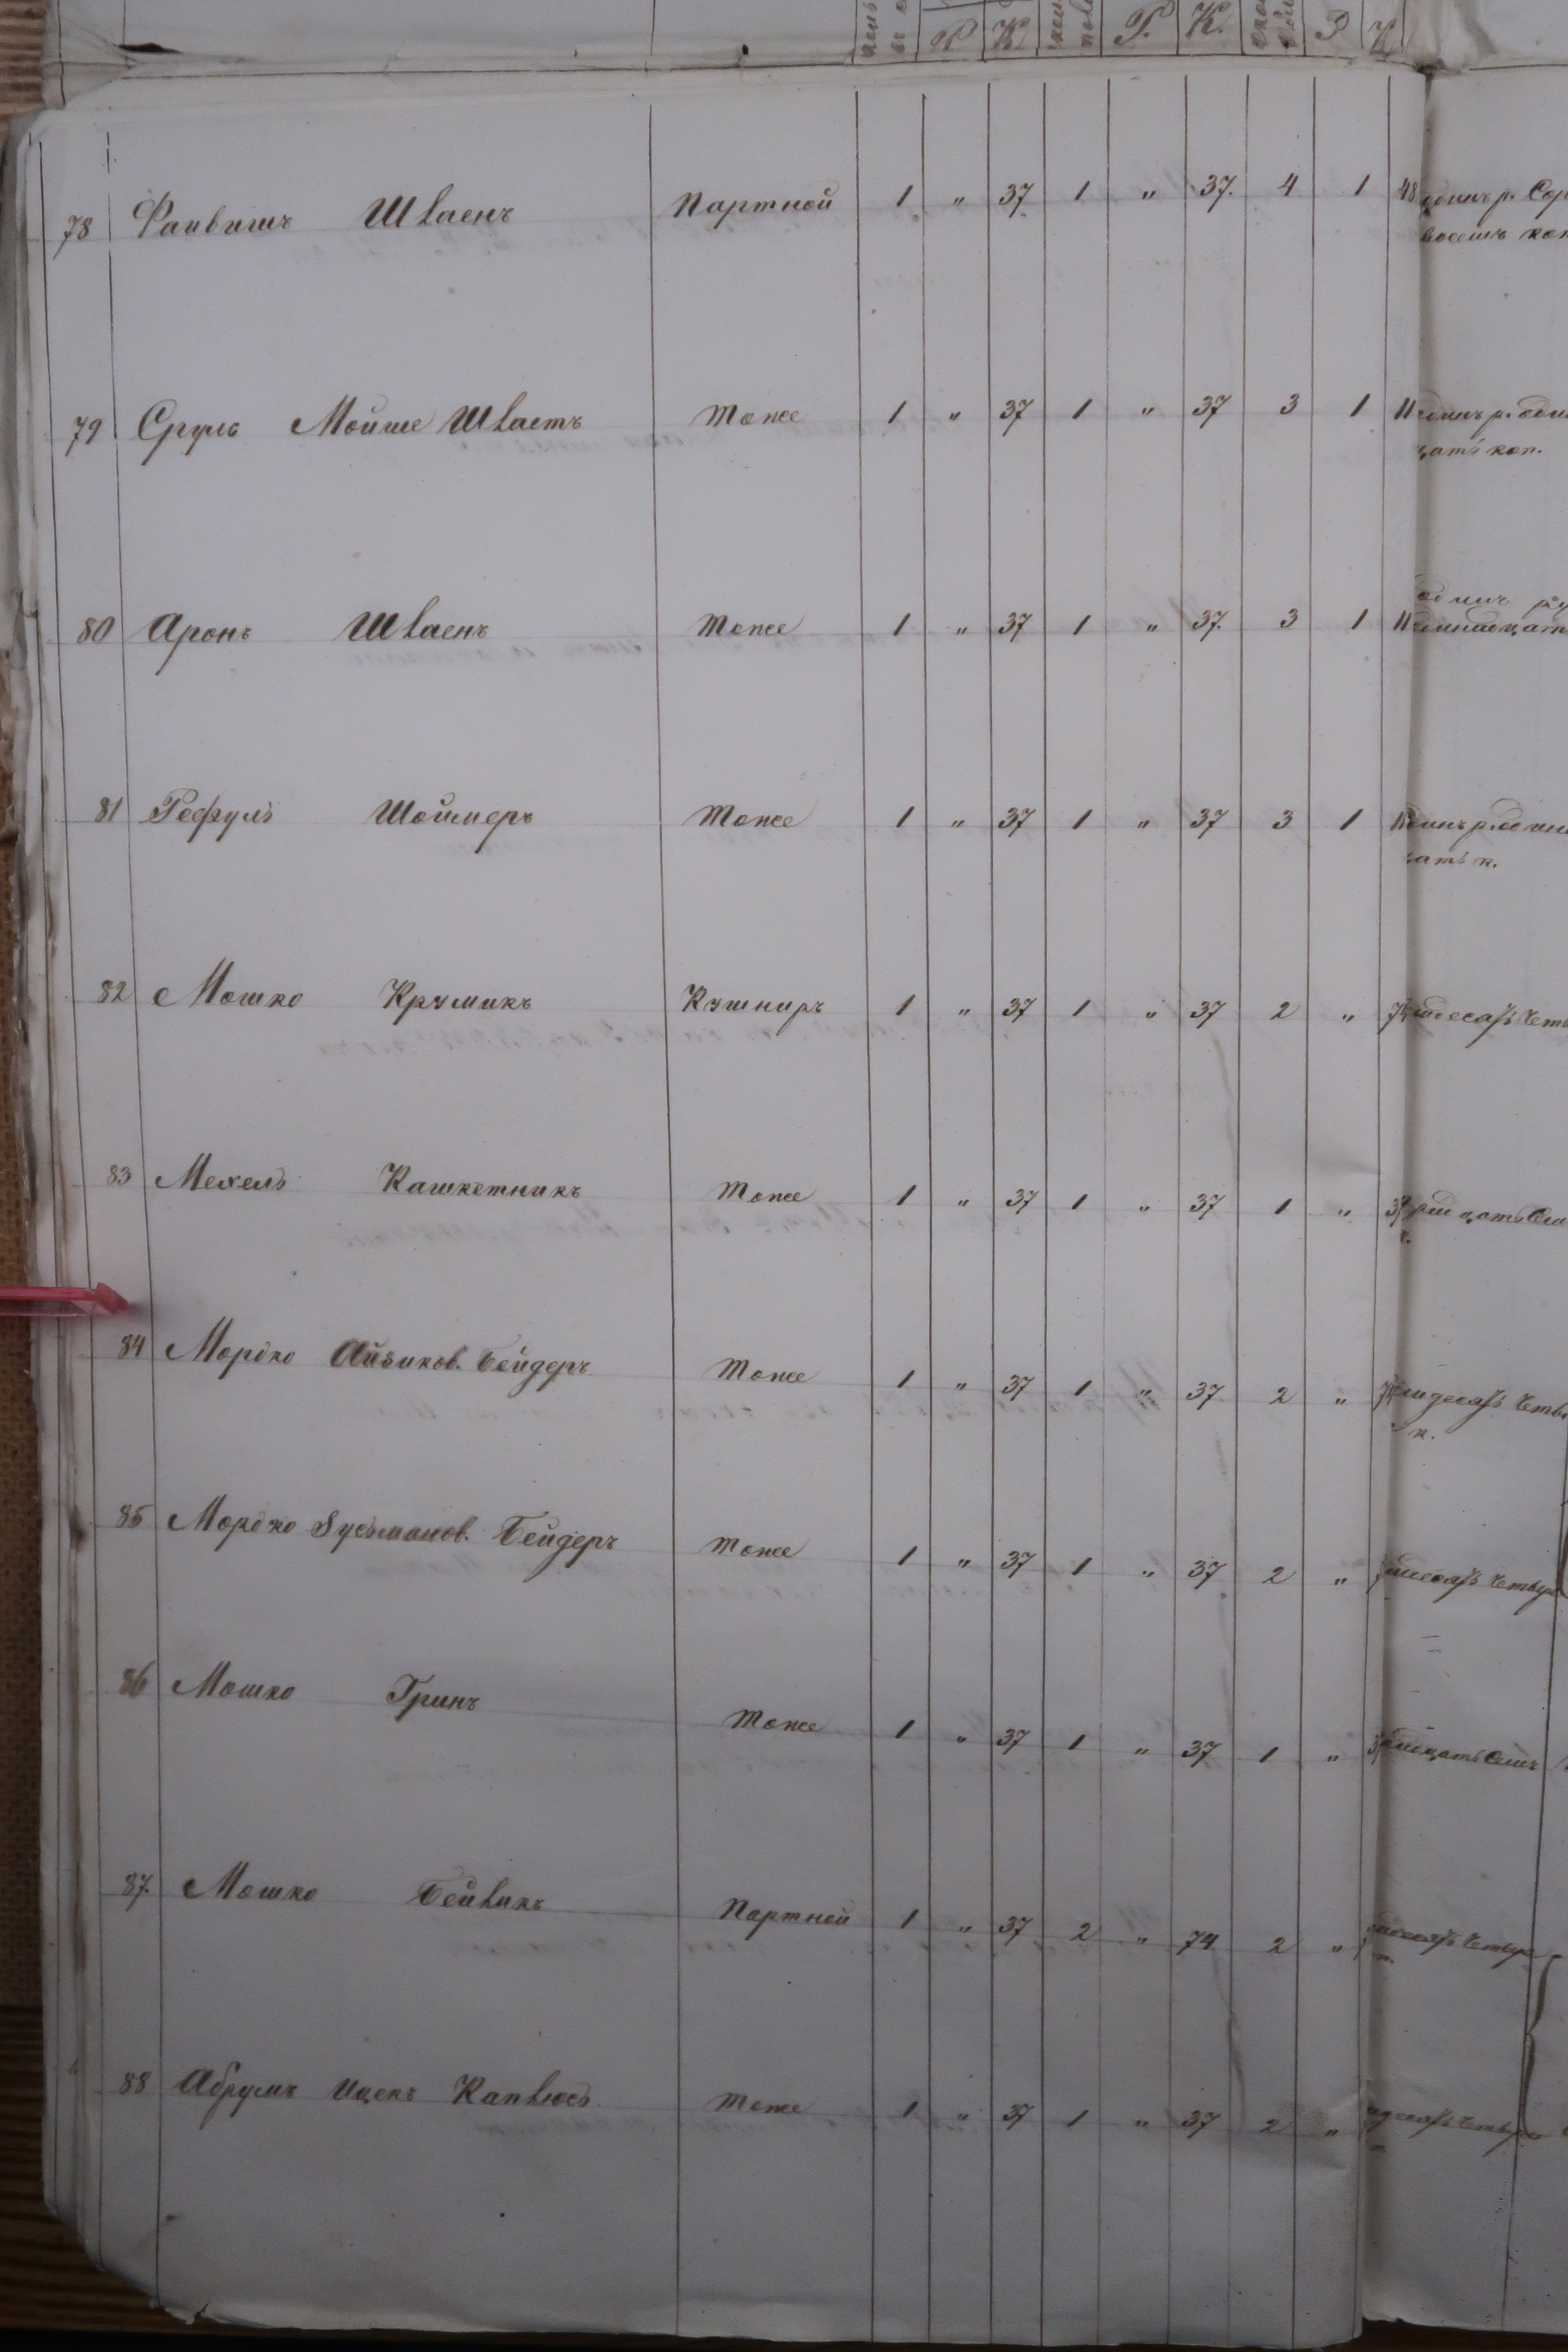 Р К Р. К. Р К
78 Файвишъ Шваенъ Партной 1 " 37 1 " 37. 4 1 48 одинъ р. Сор
восемь коп
79 Сруль Мойше Шваетъ Тоже 1 " 37 1 " 37 3 1 11 один р. один
цать коп.
один ру
80 Аронъ Шваенъ Тоже 1 " 37 1 " 37. 3 1 11 одинадцать
81 Рефулъ Шоймеръ Тоже 1 " 37 1 " 37 3 1 11
цать к.
82 Мошко Крумикъ Кушниръ 1 " 37 1 " 37 2 " 74 мдесятъ Четы
83 Мехель Кашкетникъ Тоже 1 " 37 1 " 37 1 " 37 ридцать Сем
к.
84 Мордко Айзиков. Бейдеръ Тоже 1 " 37 1 " 37 2 " 74 мдесятъ Четы
к.
85 Мордко Зусьманов. Бейдеръ Тоже 1 " 37 1 " 37 2 " мдесятъ Четыре
86 Мошко Гринъ Тоже 1 " 37 1 " 37 1 " 37 ридцать Семъ
87. Мошко Бейвикъ Партной 1 " 37 2 " 74 2 " мдесятъ Четыре
к.
88 Абрумъ Ицекъ Капвюсъ Тоже 1 " 37 1 " 37 2 " мдесятъ Четыре